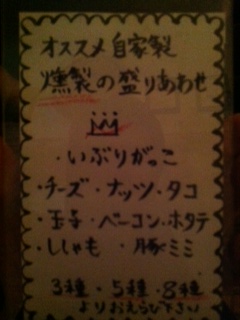 オススメ自家製
燻製の盛りあわせ
・いぶりがっこ
・チーズ・ナッツ・タコ
・玉子・ベーコン・ホタテ
・ししゃも ・豚ミミ
3種・5種・8種
よりおえらび下さい